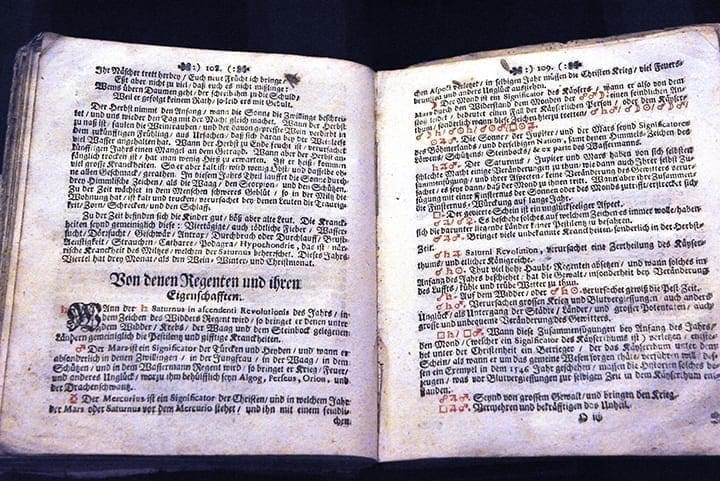 :) 108. (:
Ihr Näscher trett herbey / Euch neue Frücht ich bringe
Eßt aber nicht zu viel / daß euch es nicht mißlinge:
Wems übern Daumen geht / der schreib ihm zu die Schuld /
Weil er gefolgt keinem Rath / so leid ers mit Gedult.
Der Herbst nimmt den Anfang / wann die Sonne die Zwillinge beschrei-
tet / und uns wieder den Tag mit der Nacht gleich machet. Wann der Herbst
zu naß ist / faulen die Weintrauben / und der davon gepresste Wein verdirbt in
dem zukünfftigen Frühling / aus Ursachen / daß sich darin bey der Weinlese
viel Wasser angehalten hat. Wann der Herbst zu Ende feucht ist / verursachet
künfftigen Jahrs einen Mangel an dem Getraid. Wann aber der Herbst an-
fänglich trocken ist / hat man wenig Obst zu erwarten. Ist er heiß / kommen
viel grosse Kranckheiten. So er aber kalt ist / wird wenig Obst / und dasselbe oh-
ne allen Geschmack / gerathen. In diesem Jahrs Theil lauffet die Sonne durch
drey Himmlische Zeichen / als die Waag / den Scorpion / und den Schützen.
Zu der Zeit wächst in dem Menschen schweres Geblüt / so in der Miltz die
Wohnung hat / ist kalt und trocken / verursachet bey denen Leuten die Traurig-
keit / Zorn / Schrecken / und den Schlaff.
Zu der Zeit befinden sich die Kinder gut / böß aber alte Leut. Die Kranck-
heiten seynd gemeiniglich diese: Viertägige / auch tödtliche Fieber / Wasser-
sucht / Dörrsucht / Geschwär / Antrax / Durchbruch oder Durchlauff / Brust-
Reistigkeit / Strauchen / Catharre / Podagra / Hypochondrie, das ist / närri-
sche Kranckheit des Miltzes / welchen der Saturnus beherrschet. Dieses Jahrs-
Viertel hat drey Monat / als den Wein- Winter- und Christmonat.
Von denen Regenten und ihren
Eigenschafften.
Wann der ♄ Saturnus in ascendenti Revolutionis des Jahrs / in
dem Zeichen des Widders Regent wird / so bringet er denen unter
dem Widder / Krebs / der Waag und dem Steinbock gelegenen
Ländern gemeiniglich die Pestilentz und gifftige Kranckheiten.
♂ Der Mars ist ein Significator der Türcken und Heyden / und wann er
absonderlich in denen Zwillingen / in der Jungfrau / in der Waag / in dem
Schützen / und in dem Wassermann Regent wird / so bringet er Krieg / Feuer /
und anderes Unglück / worzu ihm behülfflich seyn Algog, Perseus, Orion, und
der Drachenschwantz.
☿ Der Mercurius ist ein Significator der Christen / und in welchem Jahr
der Mars oder Saturnus vor dem Mercurio stehet / und ihn mit einem feindli-
chen
:) 109. (:
chen Aspect verletzet / in selbigen Jahr müssen die Christen Krieg / viel Feuers-
brunsten und anders Unglück ausstehen.
☽ Der Mond ist ein Significator des Käysers / wann er also von dem
☌ ♃ ♂. Die Sonne / der Jupiter / und der Mars seynd Significatores
des Böhmerlands / und derselbigen Nation / samt denen Himmels-Zeichen des
Löwens / Schützens / Steinbocks / und des Wassermanns.
♄ ♃ ♂. Der Saturnus / Jupiter und Mars haben von sich selbsten
schlechte Macht einige Veränderungen zu thun / wie dann auch Ihrer selbst Zu-
sammenfügung / und ihrer Aspecten / keine Veränderung des Gewitters verur-
sachet / es seye dann / daß der Mond zu ihnen tritt. Wann aber ihre Zusammenfü-
gung mit einer Finsternus der Sonnen oder des Monds zutrifft / erstrecket sich
die Finsternus-Würckung auf lange Jahr.
□. Der gevierte Schein ist ein unglückseeliger Aspect.
☌ ♃ ♂. Es beschehe solches auf welchem Zeichen es immer wolle / haben
sich die darunter liegende Länder keiner Pestilentz zu befahren.
☌ ♄ ♂. Bringet viele und unbekannte Kranckheiten / sonderlich in der Herbst-
Zeit.
♂ ♃ ♄ Saturni Revolution, verursachet eine Zertheilung des Käyser-
thums / und etlicher Königreiche.
☌ ♄ ☉. Thut viel hohe Haubt-Regenten absetzen / und wann solches im
Anfang des Jahrs beschiehet / hat die Gewalt / insonderheit bey Veränderung
des Luffts / kühle und trübe Wetter zu thun.
☍ ♄. Auf dem Widder / oder ☍ ♄ ☉. verursachet gewiß die Pest-Zeit.
☍ ♄ ♂. Verursachen grossen Krieg und Blutvergiessungen / auch anders
Unglück / als Untergang der Städte / Länder / grosser Potentaten / auch
grosse und unbequeme Veränderung des Gewitters.
□ ♄ □ ♂. Wann diese Zusammenfügungen bey Anfang des Jahrs /
den Mond / (welcher ein Significator des Käyserthums ist) verletzet / entste-
het unter der Christenheit ein Betrieger / der das Käyserthum unter dem
Schein / als wann er um das gemeine Wesen sorgen thäte / verführen will / des-
sen ein Exempel in dem 1546 Jahr geschehen / massen die Historien solches be-
zeugen / was vor Blutvergiessungen zur selbigen Zeit in dem Käyserthum ent-
standen.
☌ ♃ ♂. Seynd von grossem Gewalt / und bringen den Krieg.
□ ♃ ♂. Vermehren und bekräfftigen das Unheil.